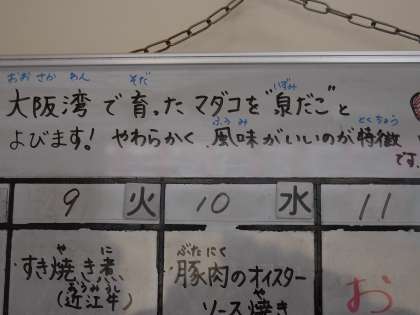 おおさか わん そだ
大阪湾で育ったマダコを“泉だこ”と
いずみ
ふうみ とくちょう
よびます! やわらかく、風味がいいのが特徴
です。
9 火 10 水 11
や に
すき焼き煮
おうみうし
(近江牛)
ぶたにく
豚肉のオイスター
や
ソース焼き
お